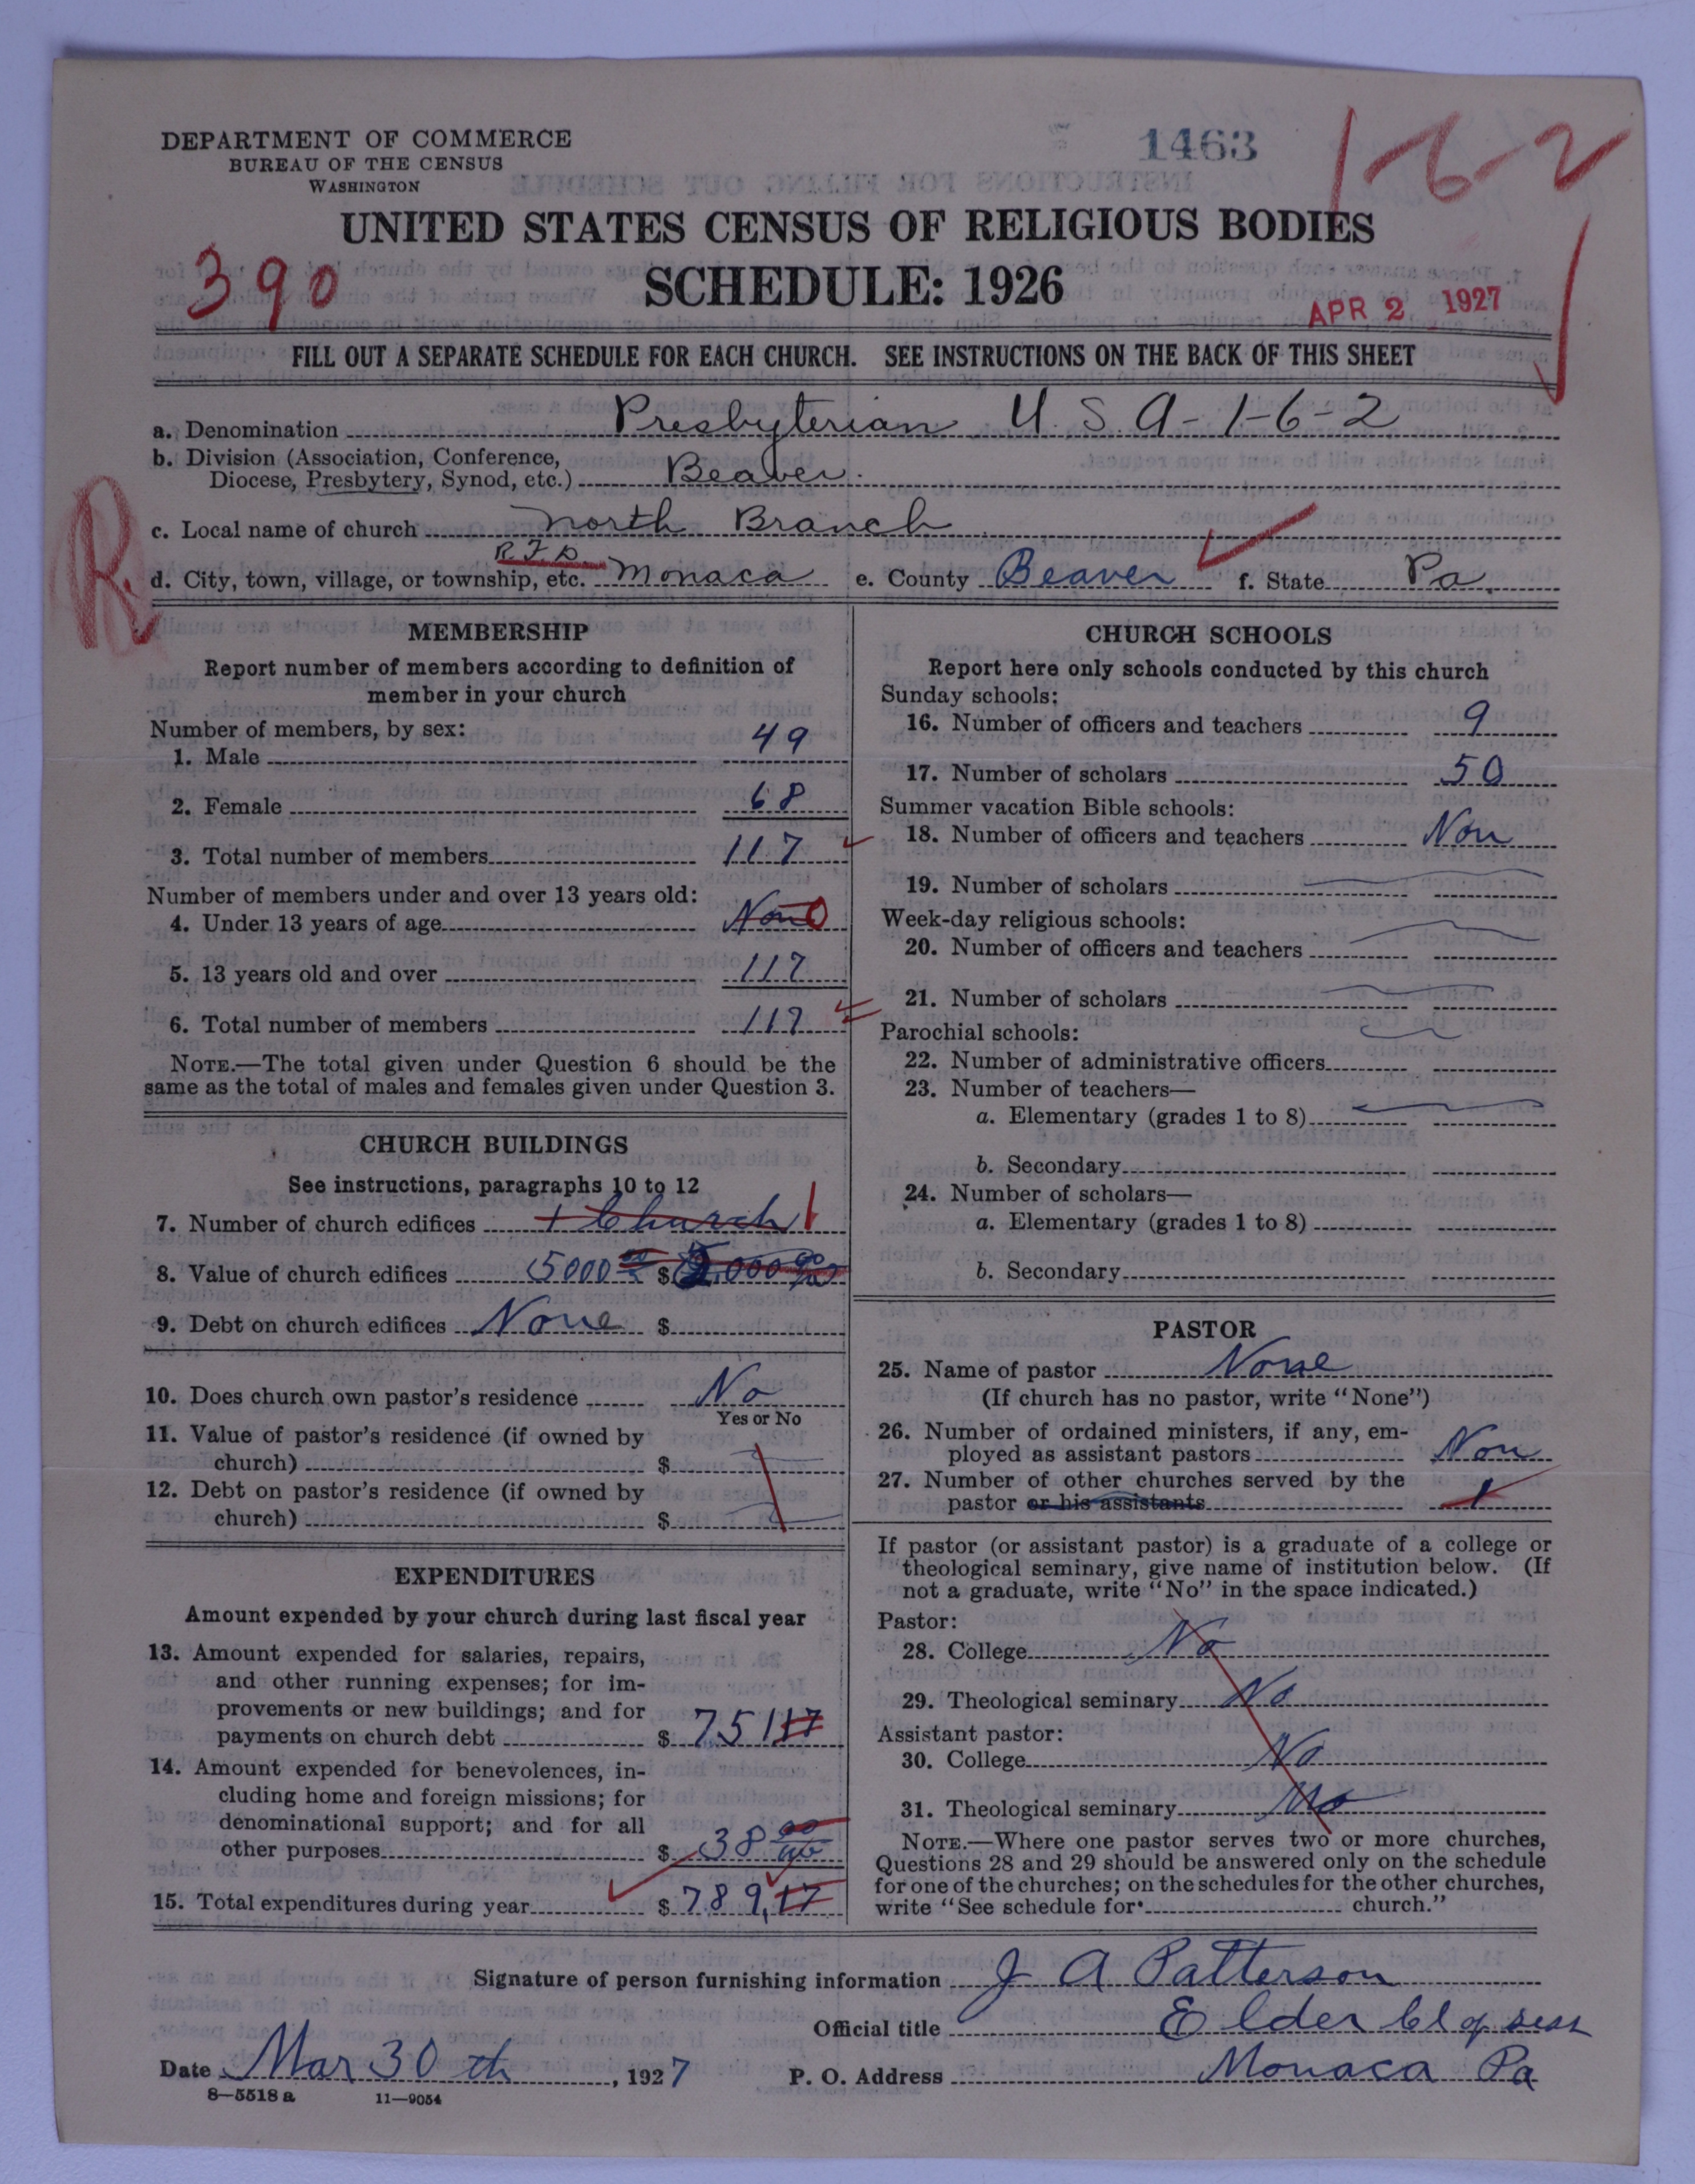 DEPARTMENT OF COMMERCE
BUREAU OF THE CENSUS
WASHINGTON
1463
1-6-2
UNITED STATES CENSUS OF RELIGIOUS BODIES
390
SCHEDULE: 1926
APR 2 1927
FILL OUT A SEPARATE SCHEDULE FOR EACH CHURCH. SEE INSTRUCTIONS ON THE BACK OF THIS SHEET
a. Denomination Presbyterian U. S A-1-6-2
b. Division (Association, Conference,
Diocese, Presbytery, Synod, etc.) Beaver
R.
c. Local name of church North Branch
R.F.D.
d. City, town, village, or township, etc. Monaca e. County Beaver f. State Pa.
MEMBERSHIP
Report number of members according to definition of
member in your church
Number of members, by sex:
1. Male 49
2. Female 68
3. Total number of members 117
Number of members under and over 13 years old:
4. Under 13 years of age Non 0
5. 13 years old and over 117
6. Total number of members 117
NOTE.—The total given under Question 6 should be the
same as the total of males and females given under Question 3.
CHURCH BUILDINGS
See instructions, paragraphs 10 to 12
7. Number of church edifices 1 Church 1
8. Value of church edifices 5000 00 $ 5,000 00
9. Debt on church edifices None $
10. Does church own pastor's residence No
Yes or No
11. Value of pastor's residence (if owned by
church) $
12. Debt on pastor's residence (if owned by
church) $
EXPENDITURES
Amount expended by your church during last fiscal year
13. Amount expended for salaries, repairs,
and other running expenses; for im-
provements or new buildings; and for
payments on church debt $ 751 17
14. Amount expended for benevolences, in-
cluding home and foreign missions; for
denominational support; and for all
other purposes $ 38 00
15. Total expenditures during year $ 789,17
CHURCH SCHOOLS
Report here only schools conducted by this church
Sunday schools:
16. Number of officers and teachers 9
17. Number of scholars 50
Summer vacation Bible schools:
18. Number of officers and teachers Non
19. Number of scholars
Week-day religious schools:
20. Number of officers and teachers
21. Number of scholars
Parochial schools:
22. Number of administrative officers
23. Number of teachers—
a. Elementary (grades 1 to 8)
b. Secondary
24. Number of scholars—
a. Elementary (grades 1 to 8)
b. Secondary
PASTOR
25. Name of pastor None
(If church has no pastor, write "None")
26. Number of ordained ministers, if any, em-
ployed as assistant pastors Non
27. Number of other churches served by the
pastor or his assistants 1
If pastor (or assistant pastor) is a graduate of a college or
theological seminary, give name of institution below. (If
not a graduate, write "No" in the space indicated.)
Pastor:
28. College No
29. Theological seminary No
Assistant pastor:
30. College No
31. Theological seminary No
NOTE.—Where one pastor serves two or more churches,
Questions 28 and 29 should be answered only on the schedule
for one of the churches; on the schedules for the other churches,
write "See schedule for church."
Signature of person furnishing information J A Patterson
Official title Elder Cl of sess
Date Mar 30 th, 1927 P. O. Address Monaca Pa
8—5518 a 11—9054